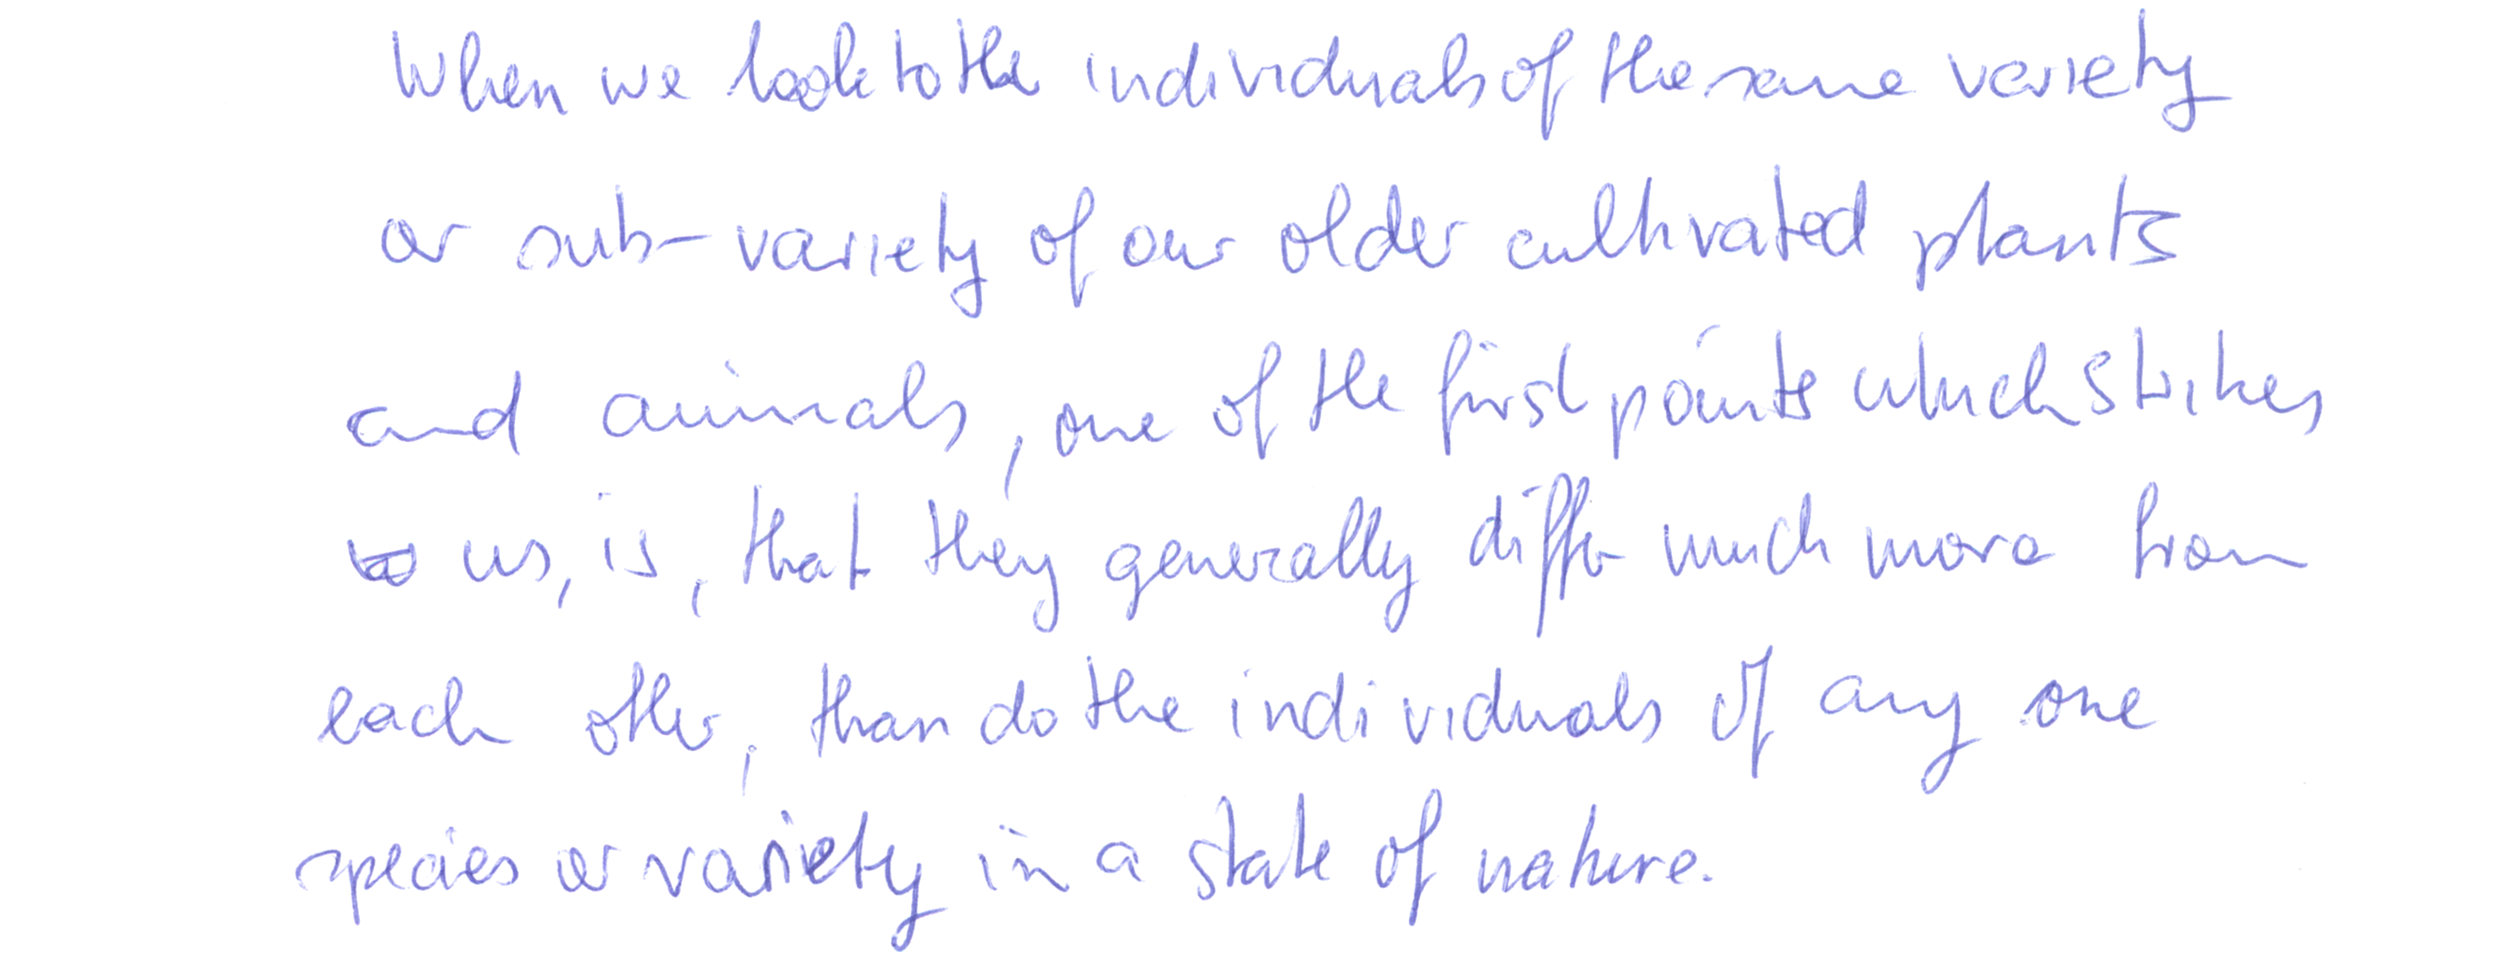 When we look to the individuals of the same variety
or sub-variety of our older cultivated plants
and animals, one of the first points which strikes
us, is, that they generally differ much more from
each other, than do the individuals of any one
species or variety in a state of nature.